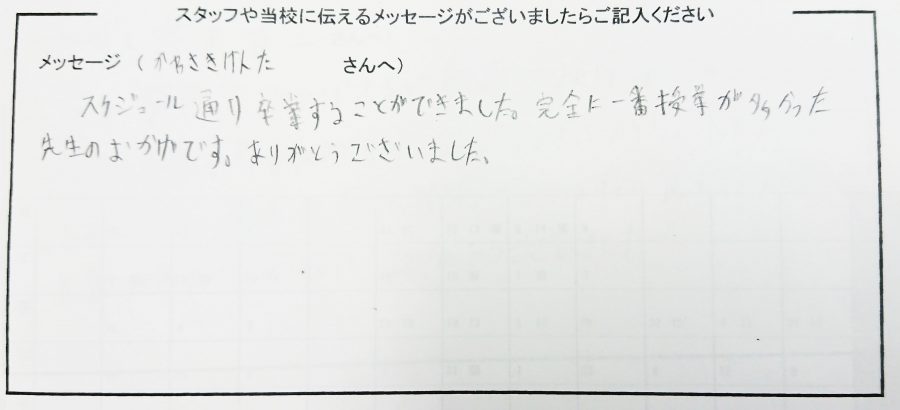 スタッフや当校に伝えるメッセージがございましたらご記入ください
メッセージ（かわさきけんた さんへ）
スケジュール通り卒業することができました。完全に一番授業が多かった
先生のおかげです。ありがとうございました。